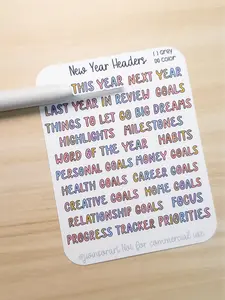 New Year Headers
11 grey
00 color
THIS YEAR NEXT YEAR
LAST YEAR IN REVIEW GOALS
THINGS TO LET GO BIG DREAMS
HIGHLIGHTS MILESTONES
WORD OF THE YEAR HABITS
PERSONAL GOALS MONEY GOALS
HEALTH GOALS CAREER GOALS
CREATIVE GOALS HOME GOALS
RELATIONSHIP GOALS FOCUS
PROGRESS TRACKER PRIORITIES
Not for commercial use